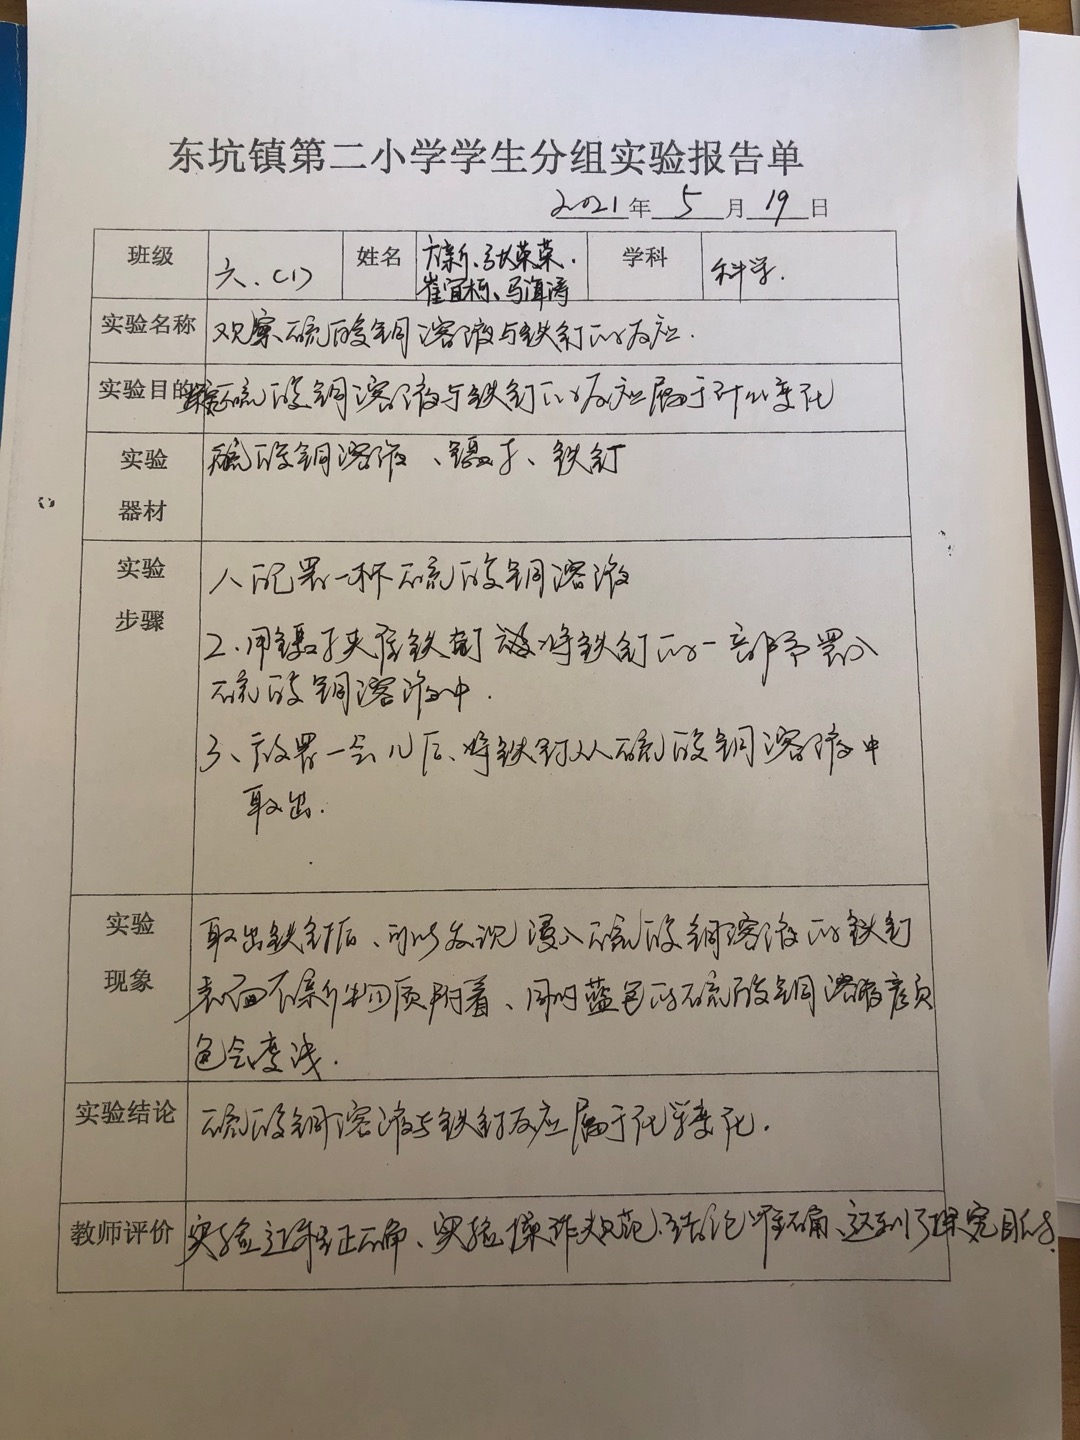 东坑镇第二小学学生分组实验报告单
2021年 5 月 19 日
班级 六.(1) 姓名 方新、张荣荣. 学科 科学.
崔宜柯、马洱涛
实验名称 观察硫酸铜溶液与铁钉的反应.
实验目的 硫酸铜溶液与铁钉的反应属于什么变化
实验 硫酸铜溶液、镊子、铁钉
器材
实验 1、配置一杯硫酸铜溶液
步骤
2.用镊子夹住铁钉 将铁钉的一部分置入
硫酸铜溶液中.
3、放置一会儿后、将铁钉从硫酸铜溶液中
取出.
实验 取出铁钉后、可以发现浸入硫酸铜溶液的铁钉
现象 表面有新物质附着、同时蓝色的硫酸铜溶液颜
色会变浅.
实验结论 硫酸铜溶液与铁钉反应属于化学变化.
教师评价 实验过程正确、实验操作规范.结论准确、达到了探究目的.